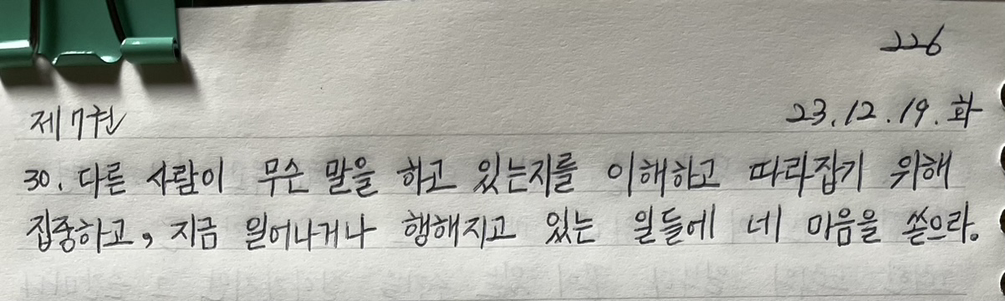 226
제7권 23.12.19.화
30. 다른 사람이 무슨 말을 하고 있는지를 이해하고 따라잡기 위해
집중하고, 지금 일어나거나 행해지고 있는 일들에 네 마음을 쏟으라.